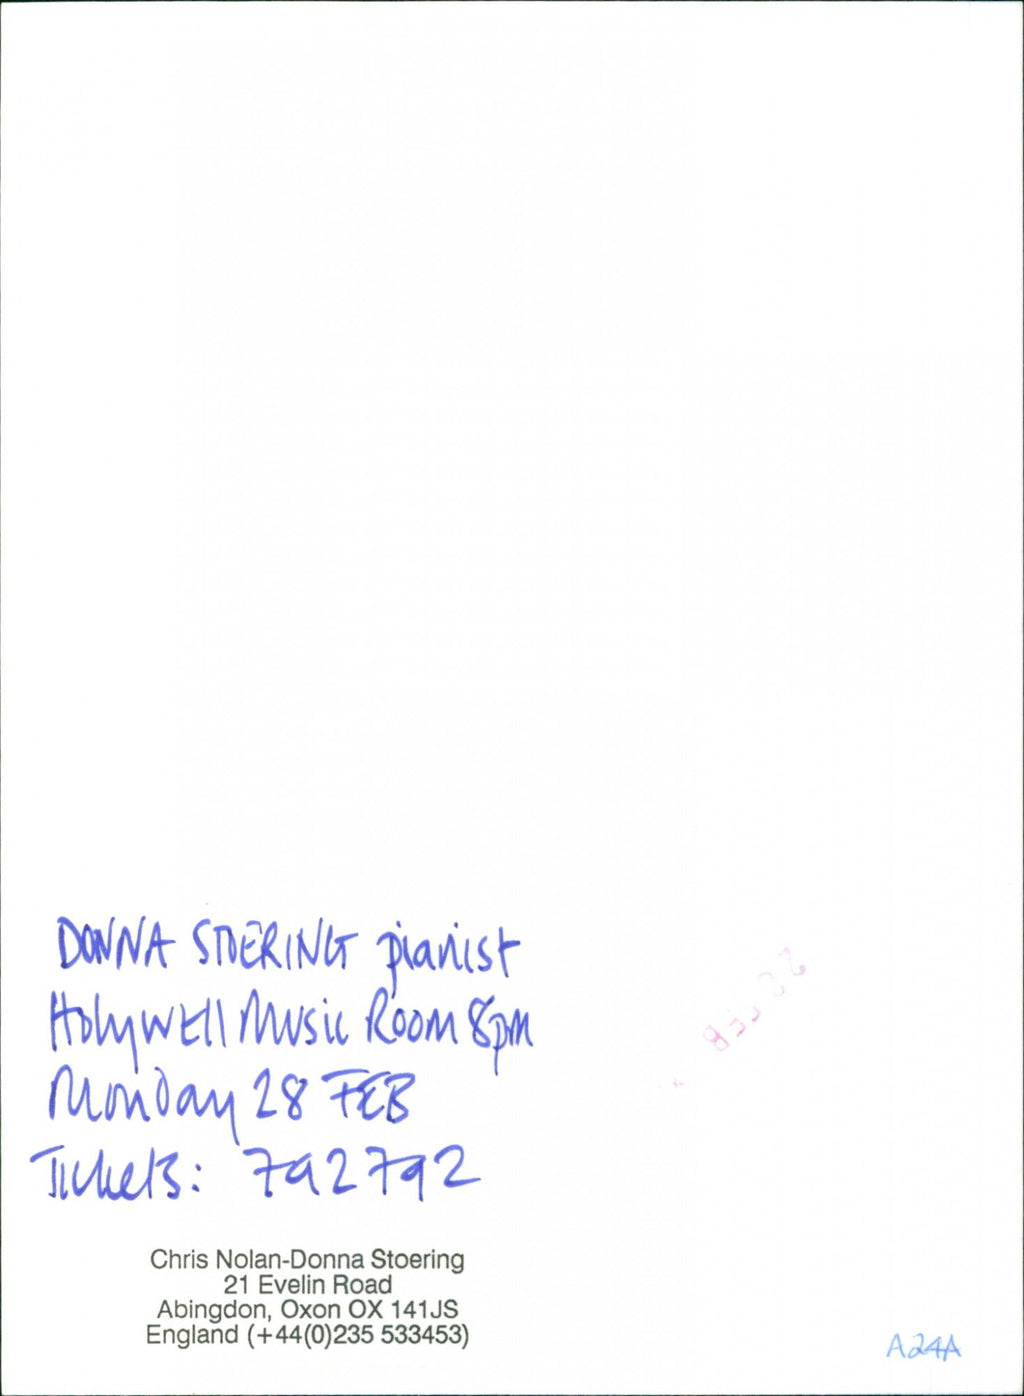 DONNA STOERING pianist
Holywell Music Room 8pm
Monday 28 FEB
Tickets: 792792
Chris Nolan-Donna Stoering
21 Evelin Road
Abingdon, Oxon OX 141JS
England (+44(0)235 533453)
A24A